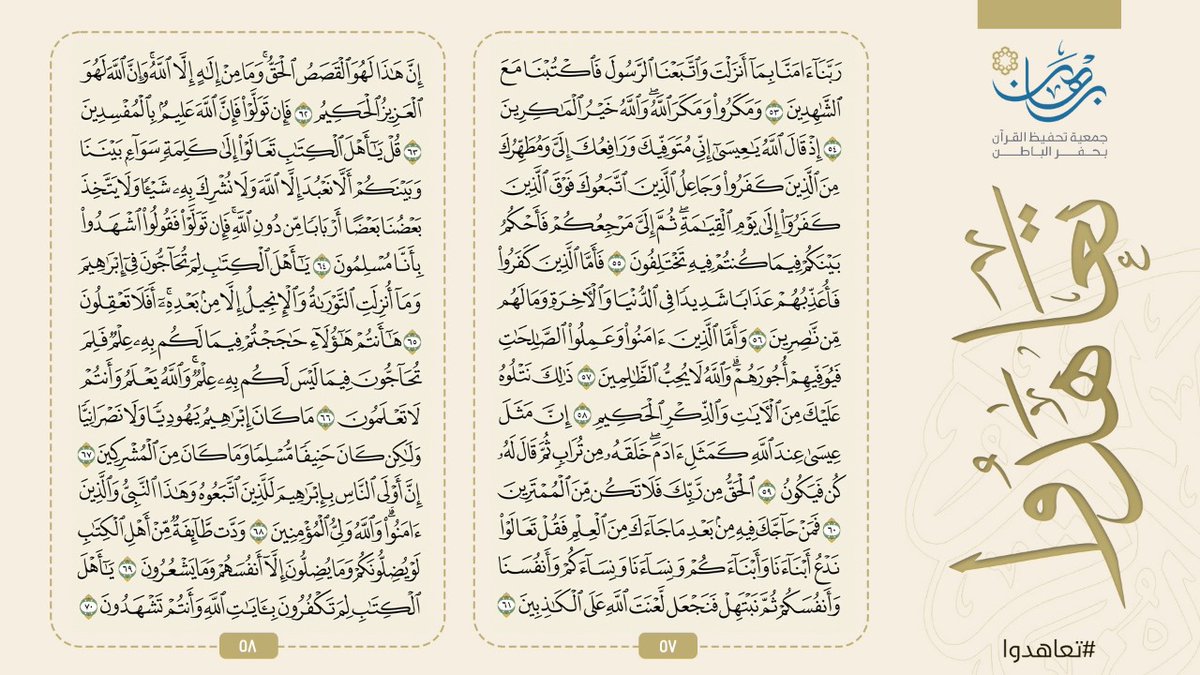 برهان
جمعية تحفيظ القرآن
بحفر الباطن
تعاهدوا
#تعاهدوا
رَبَّنَآ ءَامَنَّا بِمَآ أَنزَلْتَ وَٱتَّبَعْنَا ٱلرَّسُولَ فَٱكْتُبْنَا مَعَ
ٱلشَّٰهِدِينَ ٥٣ وَمَكَرُوا۟ وَمَكَرَ ٱللَّهُۖ وَٱللَّهُ خَيْرُ ٱلْمَٰكِرِينَ
٥٤ إِذْ قَالَ ٱللَّهُ يَٰعِيسَىٰٓ إِنِّى مُتَوَفِّيكَ وَرَافِعُكَ إِلَىَّ وَمُطَهِّرُكَ
مِنَ ٱلَّذِينَ كَفَرُوا۟ وَجَاعِلُ ٱلَّذِينَ ٱتَّبَعُوكَ فَوْقَ ٱلَّذِينَ
كَفَرُوٓا۟ إِلَىٰ يَوْمِ ٱلْقِيَٰمَةِۖ ثُمَّ إِلَىَّ مَرْجِعُكُمْ فَأَحْكُمُ
بَيْنَكُمْ فِيمَا كُنتُمْ فِيهِ تَخْتَلِفُونَ ٥٥ فَأَمَّا ٱلَّذِينَ كَفَرُوا۟
فَأُعَذِّبُهُمْ عَذَابًا شَدِيدًا فِى ٱلدُّنْيَا وَٱلْءَاخِرَةِ وَمَا لَهُم
مِّن نَّٰصِرِينَ ٥٦ وَأَمَّا ٱلَّذِينَ ءَامَنُوا۟ وَعَمِلُوا۟ ٱلصَّٰلِحَٰتِ
فَيُوَفِّيهِمْ أُجُورَهُمْۗ وَٱللَّهُ لَا يُحِبُّ ٱلظَّٰلِمِينَ ٥٧ ذَٰلِكَ نَتْلُوهُ
عَلَيْكَ مِنَ ٱلْءَايَٰتِ وَٱلذِّكْرِ ٱلْحَكِيمِ ٥٨ إِنَّ مَثَلَ
عِيسَىٰ عِندَ ٱللَّهِ كَمَثَلِ ءَادَمَۖ خَلَقَهُۥ مِن تُرَابٍ ثُمَّ قَالَ لَهُۥ
كُن فَيَكُونُ ٥٩ ٱلْحَقُّ مِن رَّبِّكَ فَلَا تَكُن مِّنَ ٱلْمُمْتَرِينَ
٦٠ فَمَنْ حَآجَّكَ فِيهِ مِنۢ بَعْدِ مَا جَآءَكَ مِنَ ٱلْعِلْمِ فَقُلْ تَعَالَوْا۟
نَدْعُ أَبْنَآءَنَا وَأَبْنَآءَكُمْ وَنِسَآءَنَا وَنِسَآءَكُمْ وَأَنفُسَنَا
وَأَنفُسَكُمْ ثُمَّ نَبْتَهِلْ فَنَجْعَل لَّعْنَتَ ٱللَّهِ عَلَى ٱلْكَٰذِبِينَ ٦١
٥٧
إِنَّ هَٰذَا لَهُوَ ٱلْقَصَصُ ٱلْحَقُّۚ وَمَا مِنْ إِلَٰهٍ إِلَّا ٱللَّهُۚ وَإِنَّ ٱللَّهَ لَهُوَ
ٱلْعَزِيزُ ٱلْحَكِيمُ ٦٢ فَإِن تَوَلَّوْا۟ فَإِنَّ ٱللَّهَ عَلِيمٌۢ بِٱلْمُفْسِدِينَ
٦٣ قُلْ يَٰٓأَهْلَ ٱلْكِتَٰبِ تَعَالَوْا۟ إِلَىٰ كَلِمَةٍ سَوَآءٍۭ بَيْنَنَا
وَبَيْنَكُمْ أَلَّا نَعْبُدَ إِلَّا ٱللَّهَ وَلَا نُشْرِكَ بِهِۦ شَيْـًٔا وَلَا يَتَّخِذَ
بَعْضُنَا بَعْضًا أَرْبَابًا مِّن دُونِ ٱللَّهِۚ فَإِن تَوَلَّوْا۟ فَقُولُوا۟ ٱشْهَدُوا۟
بِأَنَّا مُسْلِمُونَ ٦٤ يَٰٓأَهْلَ ٱلْكِتَٰبِ لِمَ تُحَآجُّونَ فِىٓ إِبْرَٰهِيمَ
وَمَآ أُنزِلَتِ ٱلتَّوْرَىٰةُ وَٱلْإِنجِيلُ إِلَّا مِنۢ بَعْدِهِۦٓۚ أَفَلَا تَعْقِلُونَ
٦٥ هَٰٓأَنتُمْ هَٰٓؤُلَآءِ حَٰجَجْتُمْ فِيمَا لَكُم بِهِۦ عِلْمٌ فَلِمَ
تُحَآجُّونَ فِيمَا لَيْسَ لَكُم بِهِۦ عِلْمٌۚ وَٱللَّهُ يَعْلَمُ وَأَنتُمْ
لَا تَعْلَمُونَ ٦٦ مَا كَانَ إِبْرَٰهِيمُ يَهُودِيًّا وَلَا نَصْرَانِيًّا
وَلَٰكِن كَانَ حَنِيفًا مُّسْلِمًا وَمَا كَانَ مِنَ ٱلْمُشْرِكِينَ ٦٧
إِنَّ أَوْلَى ٱلنَّاسِ بِإِبْرَٰهِيمَ لَلَّذِينَ ٱتَّبَعُوهُ وَهَٰذَا ٱلنَّبِىُّ وَٱلَّذِينَ
ءَامَنُوا۟ۗ وَٱللَّهُ وَلِىُّ ٱلْمُؤْمِنِينَ ٦٨ وَدَّت طَّآئِفَةٌ مِّنْ أَهْلِ ٱلْكِتَٰبِ
لَوْ يُضِلُّونَكُمْ وَمَا يُضِلُّونَ إِلَّآ أَنفُسَهُمْ وَمَا يَشْعُرُونَ ٦٩ يَٰٓأَهْلَ
ٱلْكِتَٰبِ لِمَ تَكْفُرُونَ بِـَٔايَٰتِ ٱللَّهِ وَأَنتُمْ تَشْهَدُونَ ٧٠
٥٨